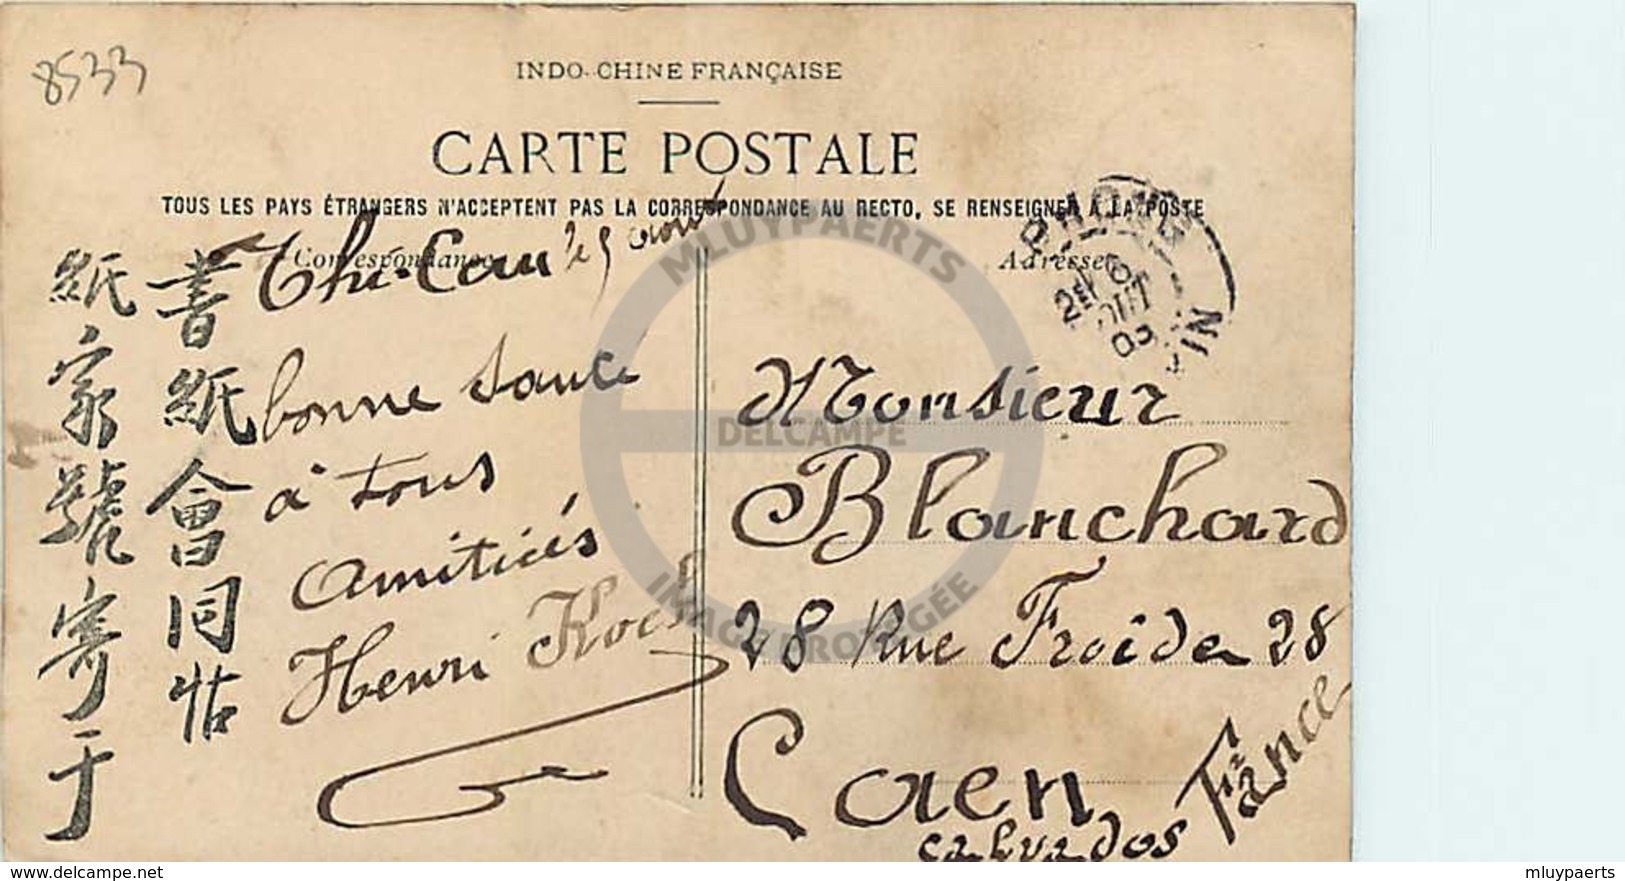 8533
INDO-CHINE FRANÇAISE
CARTE POSTALE
TOUS LES PAYS ÉTRANGERS N'ACCEPTENT PAS LA CORRESPONDANCE AU RECTO, SE RENSEIGNER A LA POSTE
Correspondance
Adresse
Thi-Cau le 5 août
bonne sante
à tous
amitiés
Henri Koch
書紙會同帖
紙家號寄于
Monsieur
Blanchard
28 Rue Froide 28
Caen
calvados France
MLUYPAERTS
DELCAMPE
IMAGE PROTÉGÉE
delcampe.net
mluypaerts